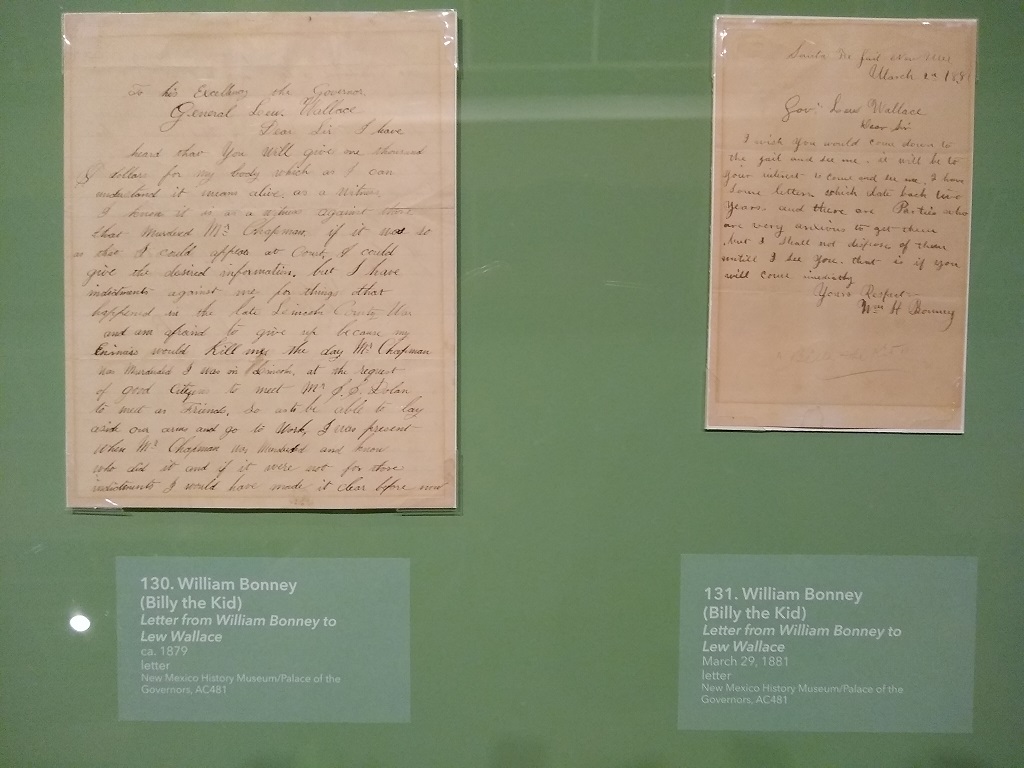 To his Excellency the Governor,
General Lew. Wallace
Dear Sir I have
heard that You Will give one thousand
$ dollars for my body which as I can
understand it means alive as a Witness.
I know it is as a witness against those
that Murdered Mr Chapman. if it was so
as that I could appear at Court, I could
give the desired information. but I have
indictments against me for things that
happened in the late Lincoln County War
and am afraid to give up because my
Enimies would Kill me. the day Mr Chapman
was Murderded I was in Lincoln, at the request
of good Citizens to meet Mr J.J. Dolan
to meet as Friends. So as to be able to lay
aside our arms and go to Work. I was present
When Mr Chapman was Murderded and know
who did it and if it were not for those
indictments I would have made it clear before now
130. William Bonney
(Billy the Kid)
Letter from William Bonney to
Lew Wallace
ca. 1879
letter
New Mexico History Museum/Palace of the
Governors, AC481
Santa Fe Jail New Mex
March 2d 1881
Gov. Lew Wallace
Dear Sir
I wish You would come down to
the jail and see me. it will be to
your interest to come and see me. I have
Some letters which date back two
Years. and there are Parties who
are very anxious to get them
but I Shall not dispose of them
untill I see You. that is if you
will come imediatly
Yours Respect-
Wm H Bonney
131. William Bonney
(Billy the Kid)
Letter from William Bonney to
Lew Wallace
March 29, 1881
letter
New Mexico History Museum/Palace of the
Governors, AC481